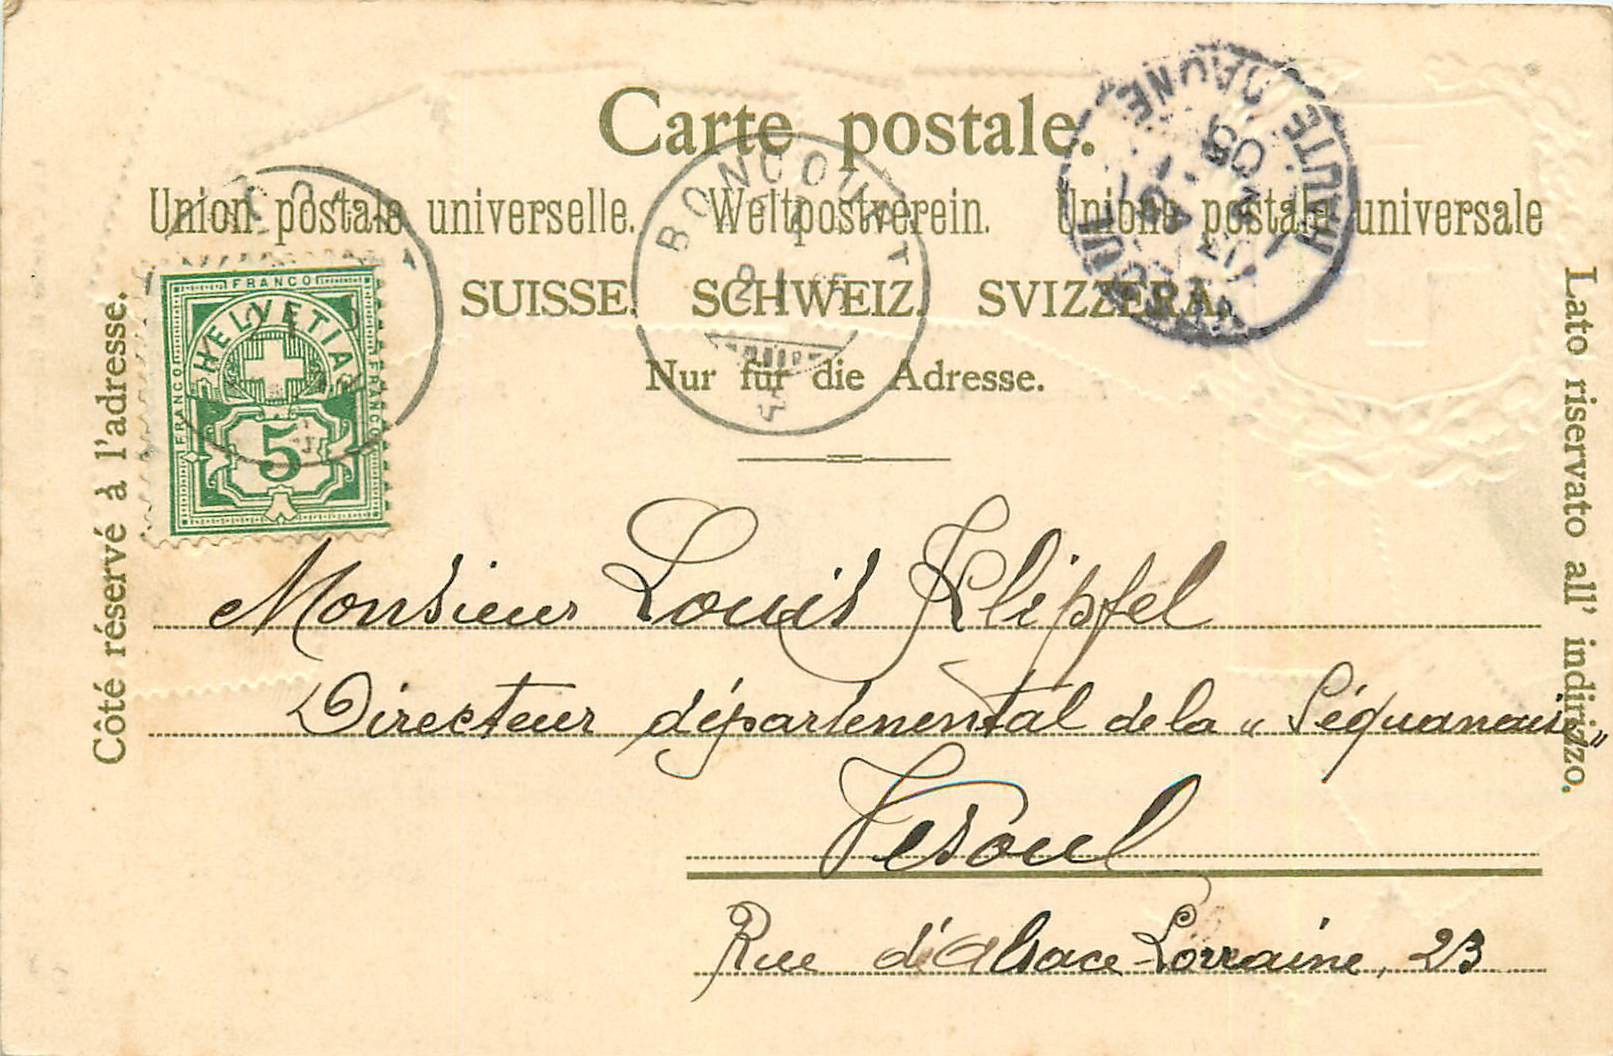 Carte postale.
Union postale universelle. Weltpostverein. Unione postale universale
SUISSE. SCHWEIZ. SVIZZERA.
Nur für die Adresse.
Côté réservé à l'adresse.
Lato riservato all' indirizzo.
FRANCO
FRANCO
FRANCO
HELVETIA
5
BONCOURT
HAUTE SAONE
Monsieur Louis Klipfel
Directeur départemental de la "Séquanaise"
Vesoul
Rue d'Alsace-Lorraine, 23